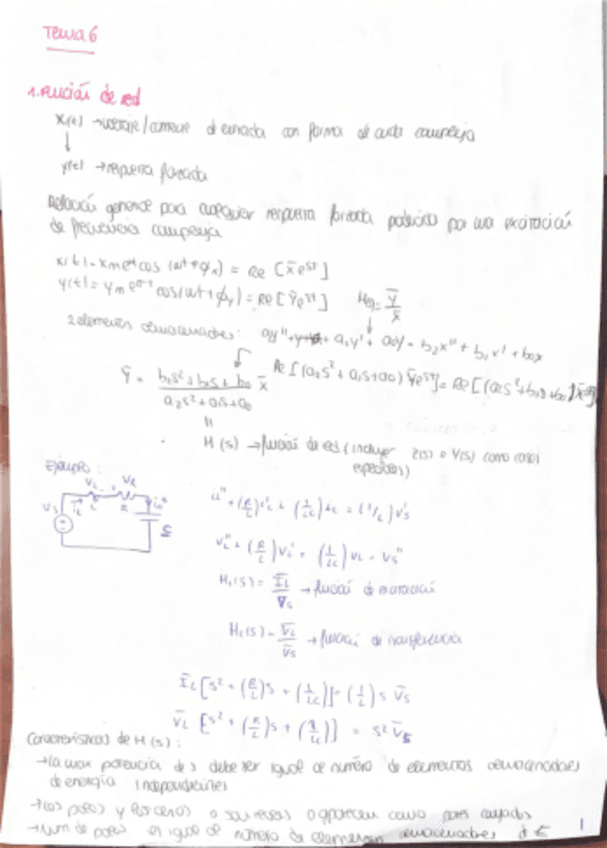 Tema 6
1. Función de red
x(t) → voltaje/corriente de entrada con forma de onda compleja
↓
y(t) → respuesta forzada
Relación general para cualquier respuesta forzada producida por una excitación
de frecuencia compleja
x(t) = Xm e^σt cos (ωt + φx) = Re [X̄ e^st]
y(t) = Ym e^σt cos(ωt + φy) = Re [Ȳ e^st] H(s) = Ȳ/X̄
2 elementos almacenadores: a₁y' + a₀y = b₂x'' + b₁x' + b₀x
Ȳ = (b₂s² + b₁s + b₀)/(a₂s² + a₁s + a₀) X̄ Re [(a₂s² + a₁s + a₀) Ȳe^st] = Re [
H(s) → función de red (incluyen Z(s) e Y(s) como casos
especiales)
Ejemplo:
VL VR
Vs iL L R
+ (R/L) iL' + (1/LC) iL = (1/L) Vs'
VL'' + (R/L) VL' + (1/LC) VL = Vs''
H₁(s) = ĪL/V̄s → función de excitación
H₂(s) = V̄L/V̄s → función de transferencia
ĪL [s² + (R/L)s + (1/LC)] = (1/L) s V̄s
V̄L [s² + (R/L)s + (1/LC)] = s² V̄s
Características de H(s):
→ La max potencia de s debe ser igual al número de elementos almacenadores
de energía independientes
→ Los polos y los ceros o son reales o aparecen como pares conjugados
→ Num de polos es igual al número de elementos almacenadores de E
1